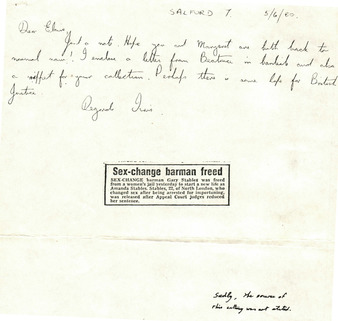 SALFORD 7. 5/6/80.
Dear Elvis,
Just a note. Hope you and Margaret are both back to
normal now! I enclose a letter from Beatrice in and also
a snippet for your collection. Perhaps there is some hope for British
Justice
Regards
Sex-change barman freed
SEX-CHANGE barman Gary Stables was freed
from a women's jail yesterday to start a new life as
Amanda Stables. Stables, 22, of North London, who
changed sex after being arrested for importuning,
was released after Appeal Court judges reduced
her sentence.
Sadly, the source of
this cutting was not stated.